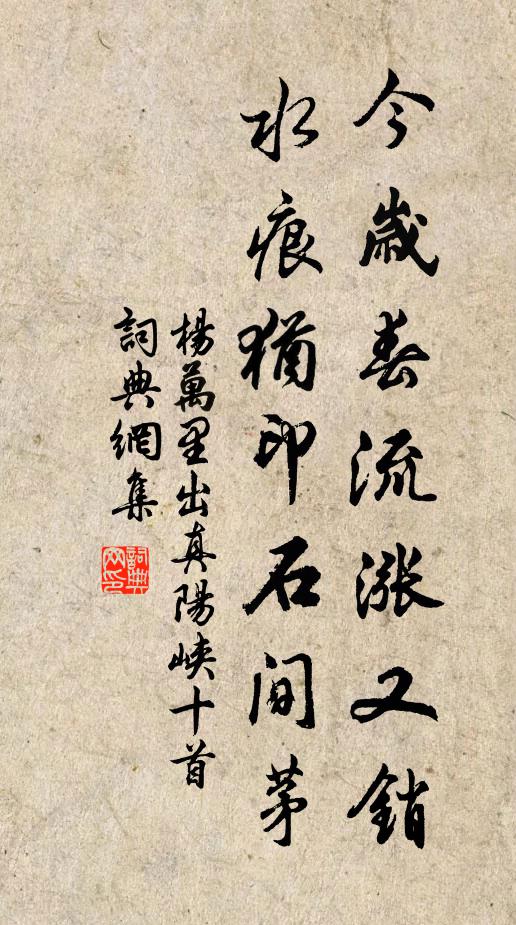 今歲春流漲又銷
水痕猶印石間茅
楊萬里出真陽峽十首
詞典網集
詞典網印